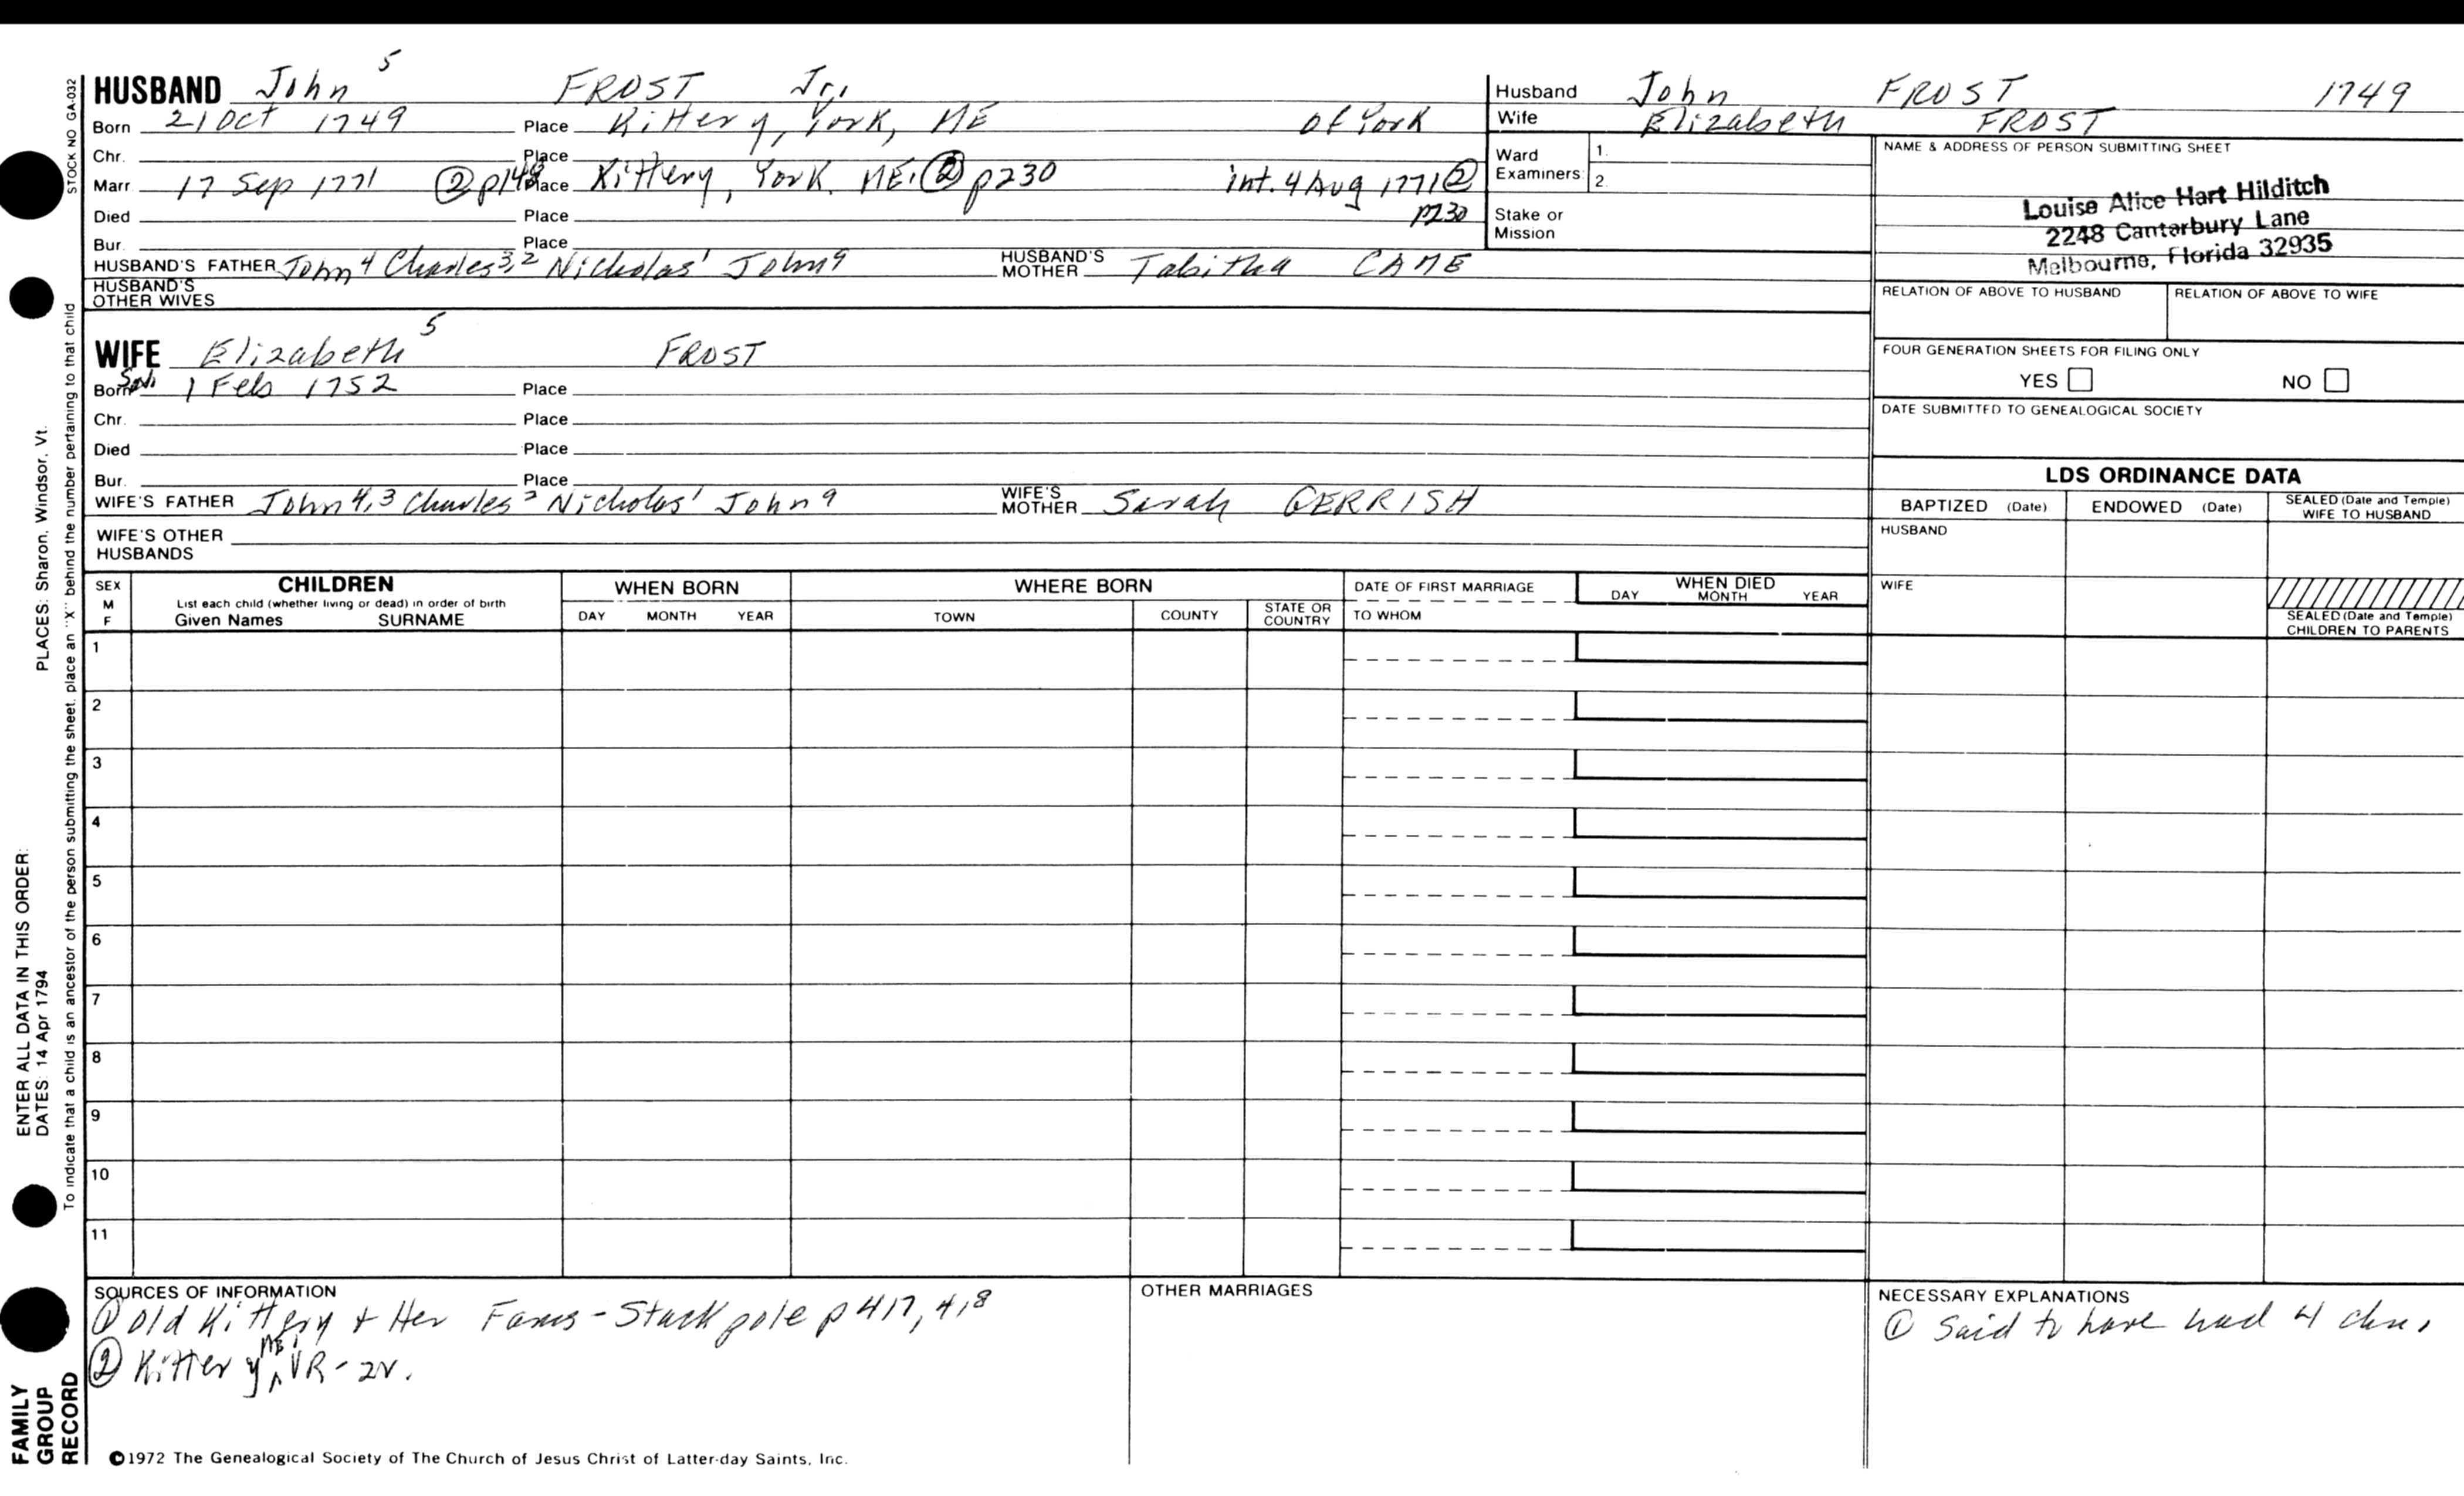 STOCK NO GA-032
HUSBAND John 5 FROST Jr.
Born 21 Oct 1749 Place Kittery, York, ME of York
Chr. Place
Marr. 17 Sep 1771 ② p148 Place Kittery, York. ME. ② p230 int. 4 Aug 1771 ②
p230
Died Place
Bur. Place
HUSBAND'S FATHER John 4 Charles 3,2 Nicholas 1 John 9 HUSBAND'S MOTHER Tabitha CAME
HUSBAND'S OTHER WIVES
WIFE Elizabeth 5 FROST
Born 1 Feb 1752 Place
Chr. Place
Died Place
Bur. Place
WIFE'S FATHER John 4,3 Charles 2 Nicholas 1 John 9 WIFE'S MOTHER Sarah GERRISH
WIFE'S OTHER HUSBANDS
Husband John FROST 1749
Wife Elizabeth FROST
Ward Examiners 1.
2.
Stake or Mission
NAME & ADDRESS OF PERSON SUBMITTING SHEET
Louise Alice Hart Hilditch
2248 Canterbury Lane
Melbourne, Florida 32935
RELATION OF ABOVE TO HUSBAND RELATION OF ABOVE TO WIFE
FOUR GENERATION SHEETS FOR FILING ONLY
YES NO
DATE SUBMITTED TO GENEALOGICAL SOCIETY
LDS ORDINANCE DATA
BAPTIZED (Date) ENDOWED (Date) SEALED (Date and Temple) WIFE TO HUSBAND
HUSBAND
WIFE
SEALED (Date and Temple) CHILDREN TO PARENTS
SEX M F
CHILDREN
List each child (whether living or dead) in order of birth
Given Names SURNAME
WHEN BORN
DAY MONTH YEAR
WHERE BORN
TOWN COUNTY STATE OR COUNTRY
DATE OF FIRST MARRIAGE
TO WHOM
WHEN DIED
DAY MONTH YEAR
1
2
3
4
5
6
7
8
9
10
11
SOURCES OF INFORMATION
① Old Kittery + Her Fams - Stackpole p 417, 418
② Kittery, ME, VR - 2v.
OTHER MARRIAGES
NECESSARY EXPLANATIONS
① Said to have had 4 chn.
©1972 The Genealogical Society of The Church of Jesus Christ of Latter-day Saints, Inc.
FAMILY
GROUP
RECORD
ENTER ALL DATA IN THIS ORDER:
DATES: 14 Apr 1794 PLACES: Sharon, Windsor, Vt.
To indicate that a child is an ancestor of the person submitting the sheet, place an "X" behind the number pertaining to that child